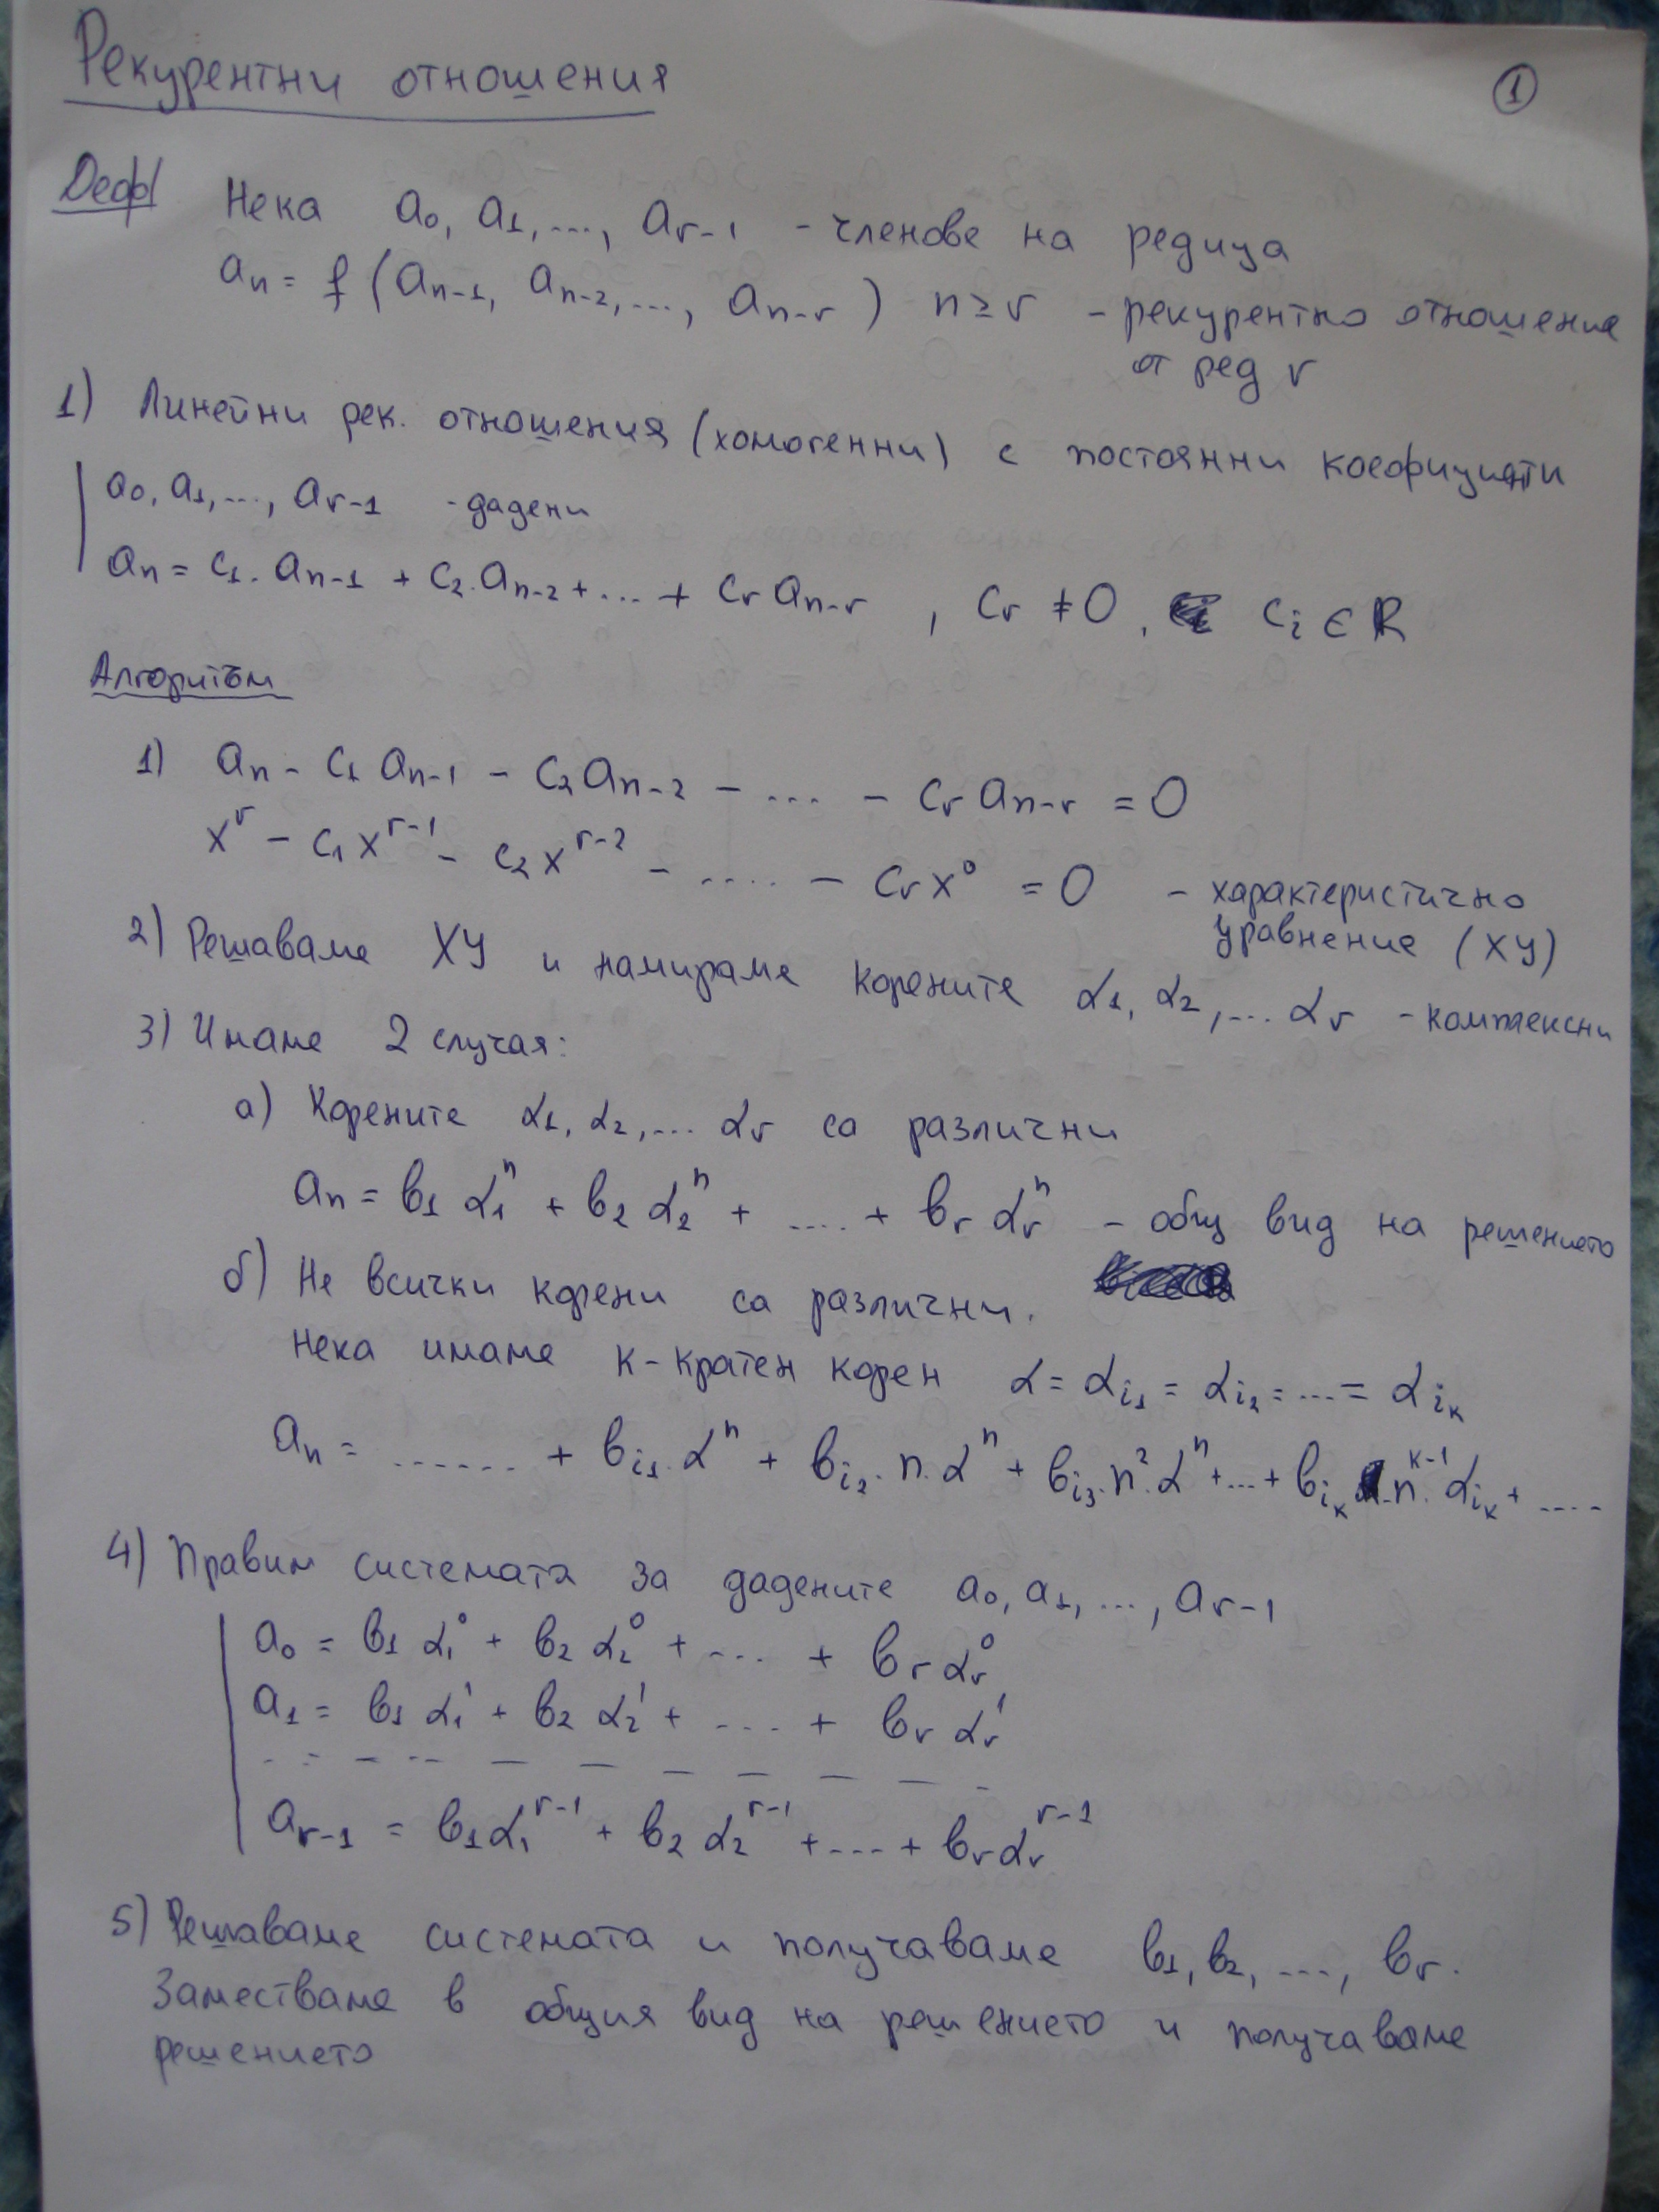 Рекурентни отношения
①
Деф/ Нека a₀, a₁, ..., aᵣ₋₁ - членове на редица
aₙ = f (aₙ₋₁, aₙ₋₂, ..., aₙ₋ᵣ) n ≥ r - рекурентно отношение
от ред r
1) Линейни рек. отношения (хомогенни) с постоянни коефициенти
a₀, a₁, ..., aᵣ₋₁ - дадени
aₙ = c₁. aₙ₋₁ + c₂. aₙ₋₂ + ... + cᵣ aₙ₋ᵣ , cᵣ ≠ 0, cᵢ ∈ R
Алгоритъм
1) aₙ - c₁ aₙ₋₁ - c₂ aₙ₋₂ - ... - cᵣ aₙ₋ᵣ = 0
x^r - c₁x^{r-1} - c₂x^{r-2} - ..... - cᵣx⁰ = 0 - характеристично
уравнение (ХУ)
2) Решаваме ХУ и намираме корените α₁, α₂, ... αᵣ - комплексни
3) Имаме 2 случая:
а) Корените α₁, α₂, ... αᵣ са различни
aₙ = b₁ α₁^n + b₂ α₂^n + .... + bᵣ αᵣ^n - общ вид на решението
б) Не всички корени са различни.
Нека имаме к-кратен корен α = α_{i₁} = α_{i₂} = ... = α_{iₖ}
aₙ = ...... + b_{i₁}. α^n + b_{i₂}. n. α^n + b_{i₃}. n². α^n + ... + b_{iₖ} . n^{k-1}. α_{iₖ} + ....
4) Правим системата за дадените a₀, a₁, ..., aᵣ₋₁
a₀ = b₁ α₁⁰ + b₂ α₂⁰ + ... + bᵣ αᵣ⁰
a₁ = b₁ α₁¹ + b₂ α₂¹ + .... + bᵣ αᵣ¹
- - - - - - - - - - - -
aᵣ₋₁ = b₁α₁^{r-1} + b₂ α₂^{r-1} + .... + bᵣαᵣ^{r-1}
5) Решаваме системата и получаваме b₁, b₂, ..., bᵣ.
Заместваме в общия вид на решението и получаваме
решението